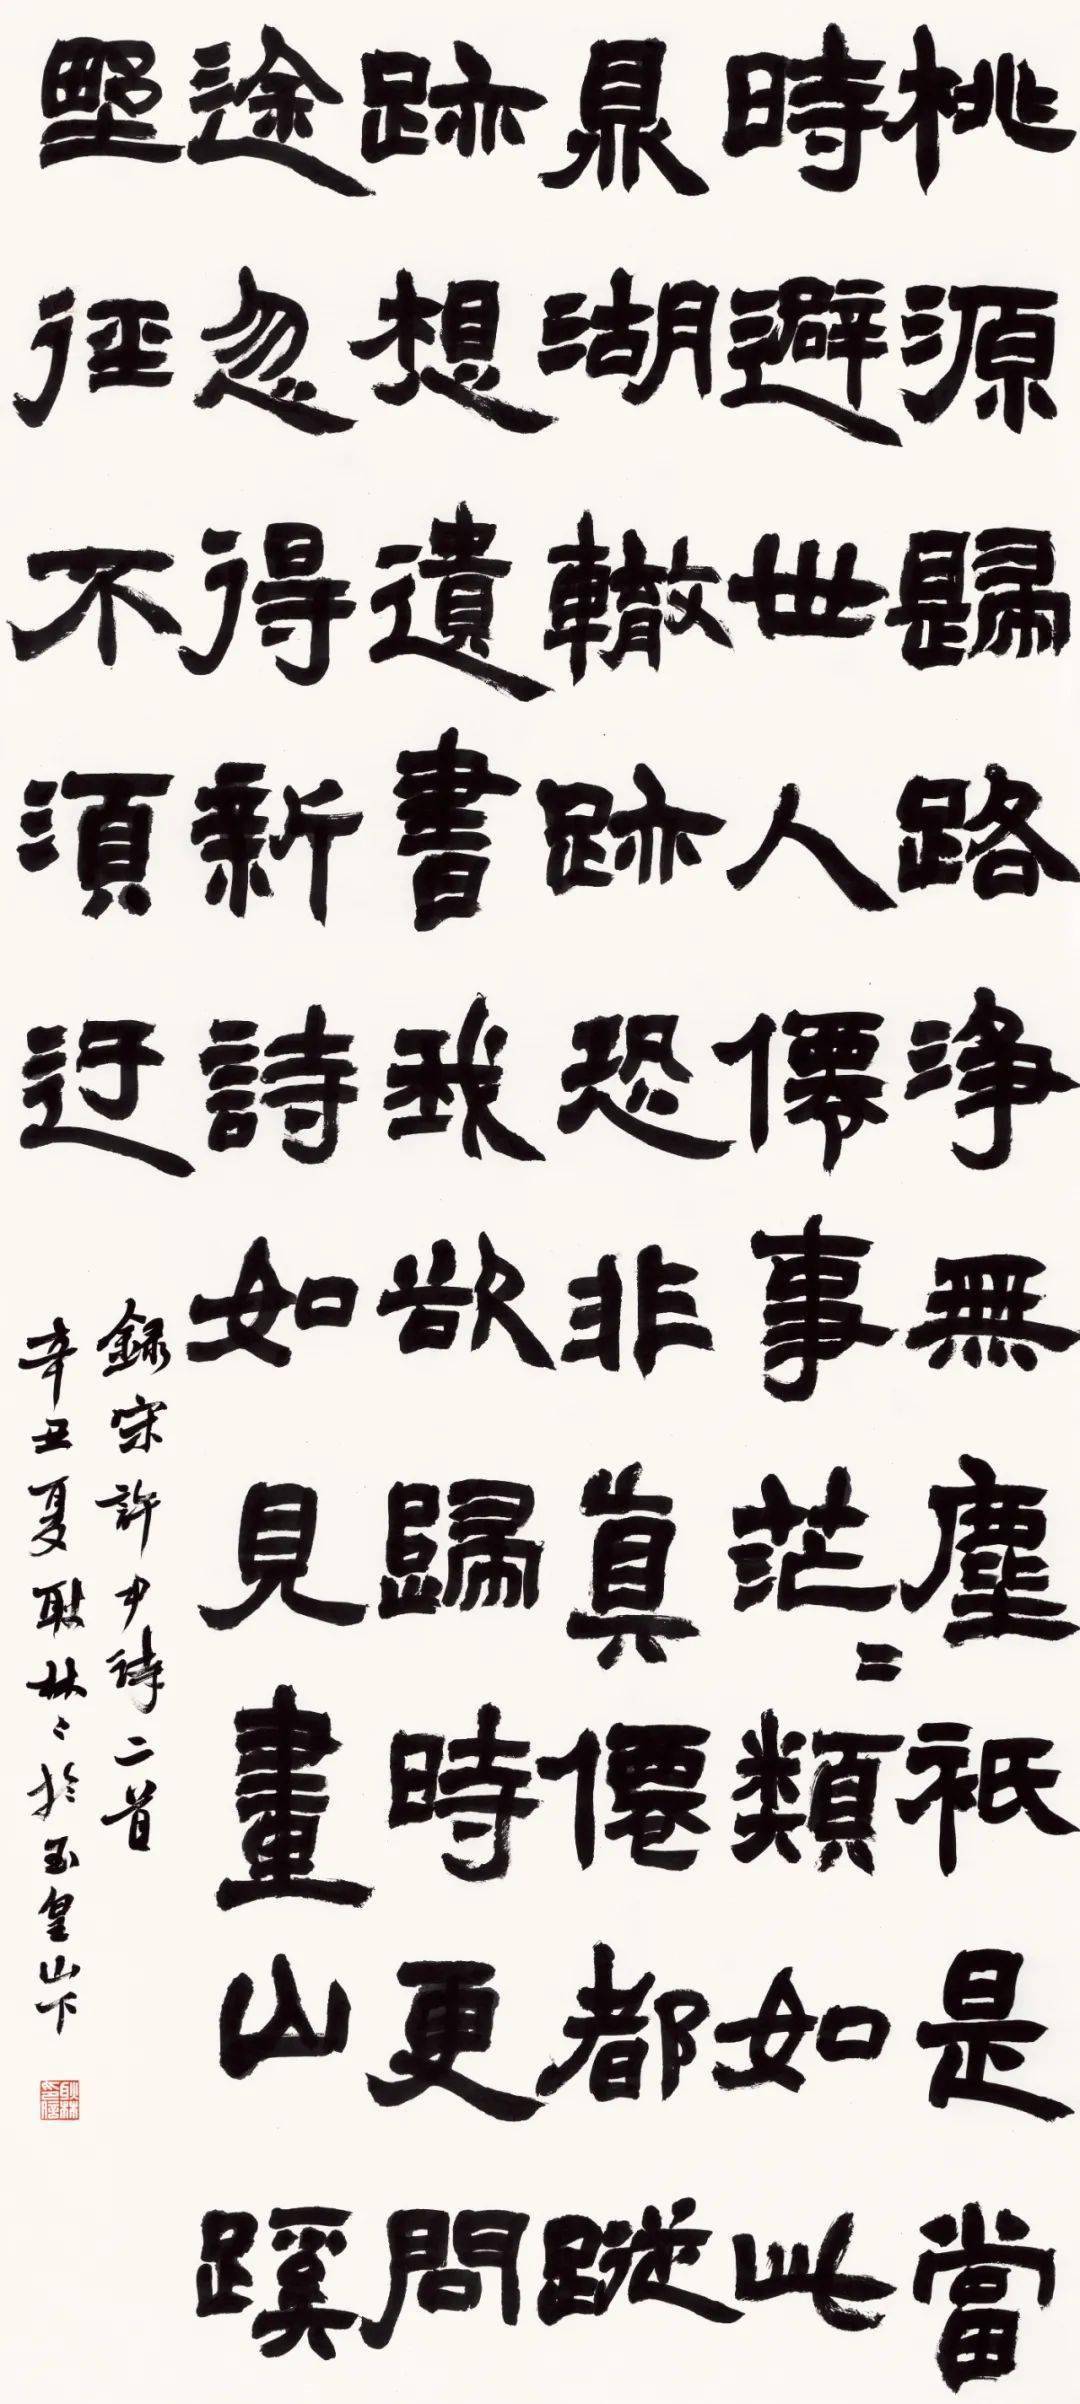 桃源歸路淨無塵祇是當
時避世人僊事茫〻類如此
鼎湖轍跡恐非眞僊都蹤
跡想遺書我欲歸時更問
途忽得新詩如見畫山蹊
野徑不須迂
錄宋許尹詩二首
辛丑夏耿林〻於玉皇山下